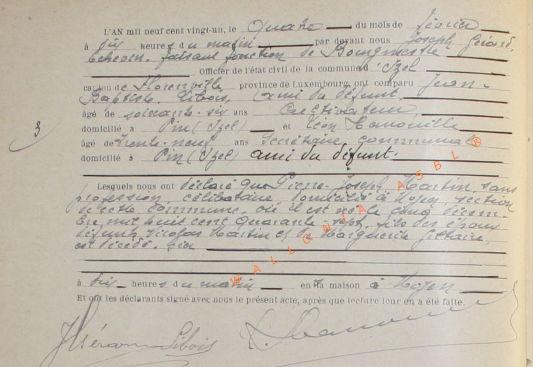 L'AN mil neuf cent vingt-un, le Quatre du mois de février
à dix heures du matin par devant nous Joseph Gérard
Echevin faisant fonction de Bourgmestre
Officier de l'état civil de la commune d'Izel
canton de Florenville, province de Luxembourg, ont comparu Jean-
Baptiste Libois, ami du défunt
âgé de soixante-six ans Cultivateur
domicilié à Pin (Izel) et Léon
âgé de trente-neuf ans Secrétaire communal
domicilié à Pin (Izel) ami du défunt.
3
Lesquels nous ont déclaré que Pierre-Joseph Martin, sans
profession, célibataire, domicilié à Moyen, section
de cette commune, où il est né le cinq décem-
bre mil huit cent quarante sept, fils des époux
défunts Nicolas Martin et de Marguerite
est décédé hier
à dix heures du matin en sa maison à Moyen
Et ont les déclarants signé avec nous le présent acte, après que lecture leur en a été faite.
JGérard Libois
WALLONIA ASBL ®